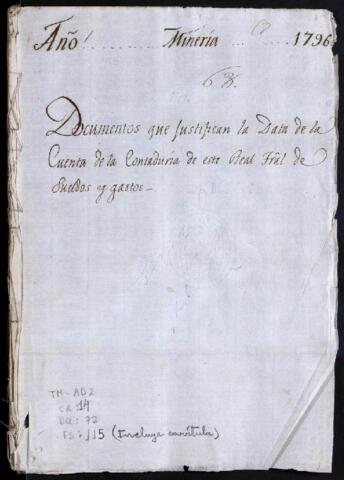 Año Minería 1796
68.
Documentos que justifican la Data de la
Cuenta de la Contaduria de este Real Trãl de
Sueldos y gastos
TM-AD2
CA 14
Doc: 72
FS: 115 (Incluye carátula)